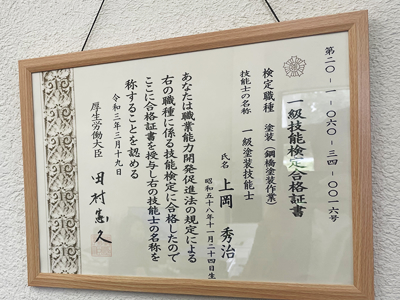 第二〇-一-〇六〇-三四-〇〇一六号
一級技能検定合格証書
検定職種 塗装(鋼橋塗装作業)
技能士の名称 一級塗装技能士
氏名 上岡 秀治
昭和五十八年十一月二十四日生
あなたは職業能力開発促進法の規定による
右の職種に係る技能検定に合格したので
ここに合格証書を授与し右の技能士の名称を
称することを認める
令和三年三月十九日
厚生労働大臣 田村憲久